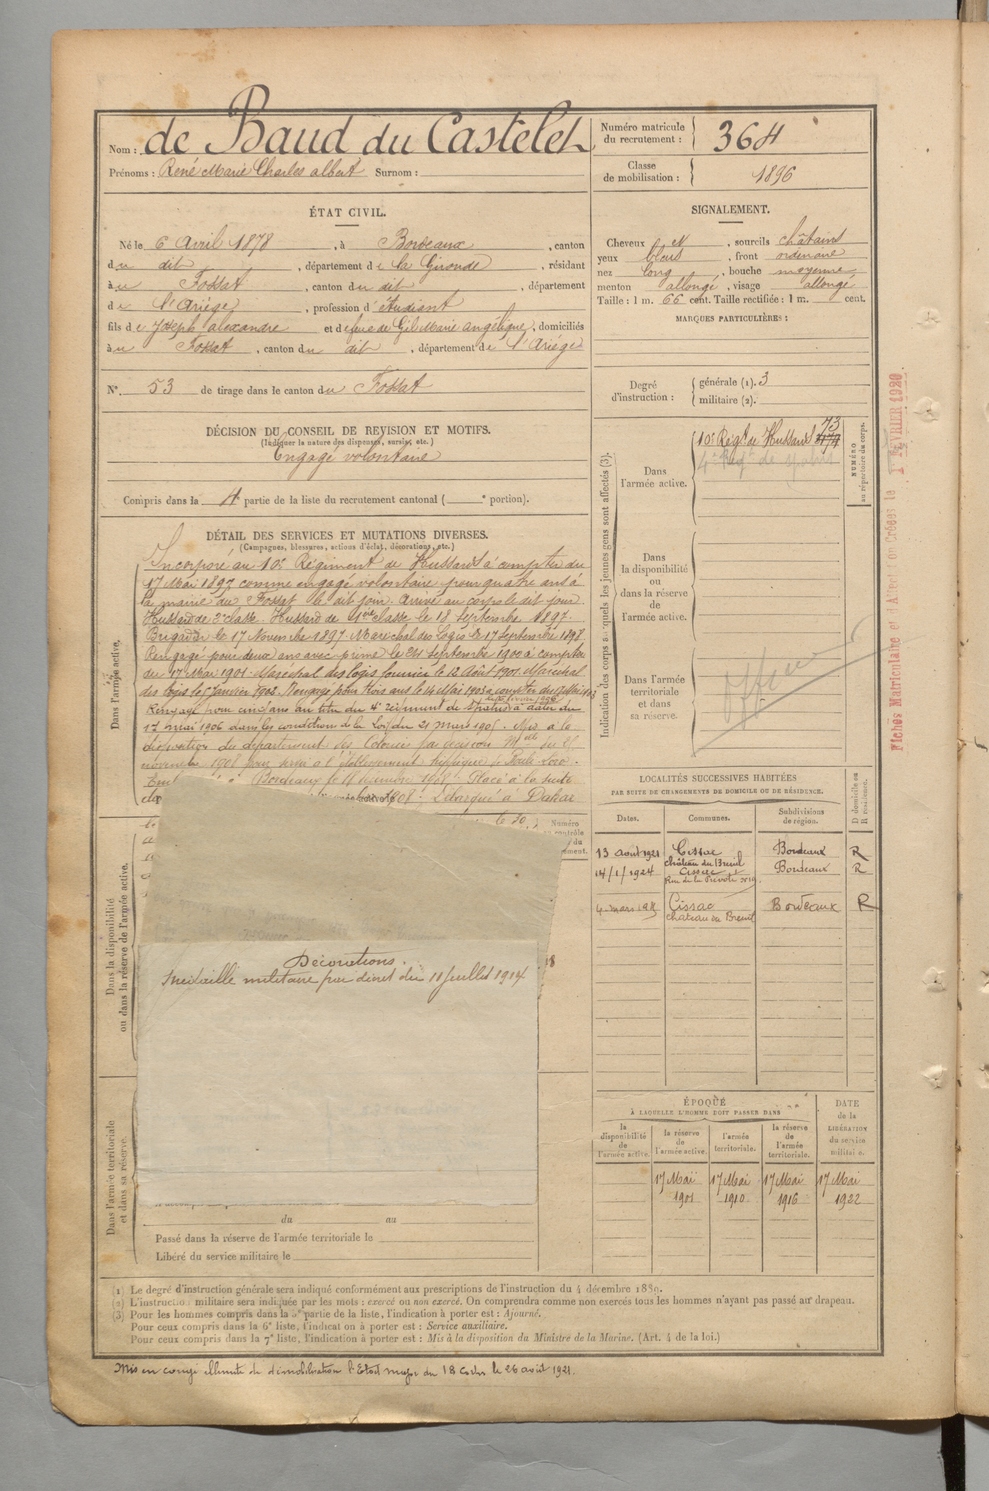 Nom : de Baud du Castelet
Prénoms : René Marie Charles albert Surnom :
Numéro matricule du recrutement : 364
Classe de mobilisation : 1896
ÉTAT CIVIL.
Né le 6 Avril 1878, à Bordeaux, canton
du dit, département de la Gironde, résidant
à u Fossat, canton du dit, département
de l'Ariège, profession d'étudiant
fils de Joseph alexandre et de feue de Gil Marie angélique, domiciliés
à u Fossat, canton du dit, département de l'Ariège
N° 53 de tirage dans le canton du Fossat
DÉCISION DU CONSEIL DE REVISION ET MOTIFS.
(Indiquer la nature des dispenses, sursis, etc.)
Engagé volontaire
Compris dans la 4 partie de la liste du recrutement cantonal ( e portion).
SIGNALEMENT.
Cheveux et, sourcils châtains
yeux bleus, front ordinaire
nez long, bouche moyenne
menton allongé, visage allongé
Taille : 1 m. 66 cent. Taille rectifiée : 1 m. cent.
MARQUES PARTICULIÈRES :
Degré d'instruction : générale (1). 3
militaire (2).
DÉTAIL DES SERVICES ET MUTATIONS DIVERSES.
(Campagnes, blessures, actions d'éclat, décorations, etc.)
Dans l'armée active.
Incorporé au 10e Régiment de Hussards à compter du
17 Mai 1897 comme engagé volontaire pour quatre ans à
la mairie du Fossat le dit jour. Arrivé au corps le dit jour.
Hussard de 2e classe. Hussard de 1ère classe le 18 septembre 1897.
Brigadier le 17 Novembre 1897. Maréchal des logis le 17 Septembre 1898.
Rengagé pour deux ans avec prime le 24 septembre 1900 à compter
du 17 Mai 1901. Maréchal des logis fourrier le 12 Août 1901. Maréchal
des logis le 1er Janvier 1902. Rengagé pour trois ans le 14 Mai 1903 à compter du 17 Mai 1903
Rengagé pour cinq ans au titre du 4e régiment de Spahis à dater du
17 mai 1906 dans les conditions de la loi du 21 mars 1905. Mis à la
disposition du département des Colonies par décision Mlle du 25
novembre 1908 pour servir à l'établissement hippique de
Bordeaux le 11 décembre 1908. Placé à la suite
1908. Débarqué à Dakar
le 20
Indication des corps auxquels les jeunes gens sont affectés (3).
Dans l'armée active.
10e Régt de Hussards 73
4e Régt de Spahis
NUMÉRO au répertoire du corps.
Dans la disponibilité ou dans la réserve de l'armée active.
Dans l'armée territoriale et dans sa réserve.
Officier
Fiches Matriculaire et d'Affectation Créées le 1er FÉVRIER 1929
LOCALITÉS SUCCESSIVES HABITÉES
PAR SUITE DE CHANGEMENTS DE DOMICILE OU DE RÉSIDENCE.
Dates. Communes. Subdivisions de région. D domicile ou R résidence.
13 août 1921 Cissac Château du Breuil Bordeaux R
14/1/1924 Cissac Bordeaux R
4 mars Cissac Château du Breuil Bordeaux R
Dans la disponibilité ou dans la réserve de l'armée active.
Décorations.
Médaille militaire par décret du 11 Juillet 1914
ÉPOQUE
À LAQUELLE L'HOMME DOIT PASSER DANS
la disponibilité de l'armée active.
la réserve de l'armée active.
l'armée territoriale.
la réserve de l'armée territoriale.
DATE de la LIBÉRATION du service militaire.
17 Mai 1901 17 Mai 1910 17 Mai 1916 17 Mai 1922
Dans l'armée territoriale et dans sa réserve.
du au
Passé dans la réserve de l'armée territoriale le
Libéré du service militaire le
(1) Le degré d'instruction générale sera indiqué conformément aux prescriptions de l'instruction du 4 décembre 1889.
(2) L'instruction militaire sera indiquée par les mots : exercé ou non exercé. On comprendra comme non exercés tous les hommes n'ayant pas passé au drapeau.
(3) Pour les hommes compris dans la 5e partie de la liste, l'indication à porter est : Ajourné.
Pour ceux compris dans la 6e liste, l'indication à porter est : Service auxiliaire.
Pour ceux compris dans la 7e liste, l'indication à porter est : Mis à la disposition du Ministre de la Marine. (Art. 4 de la loi.)
Mis en congé illimité de démobilisation Etat major du 18 Corps le 26 août 1921.